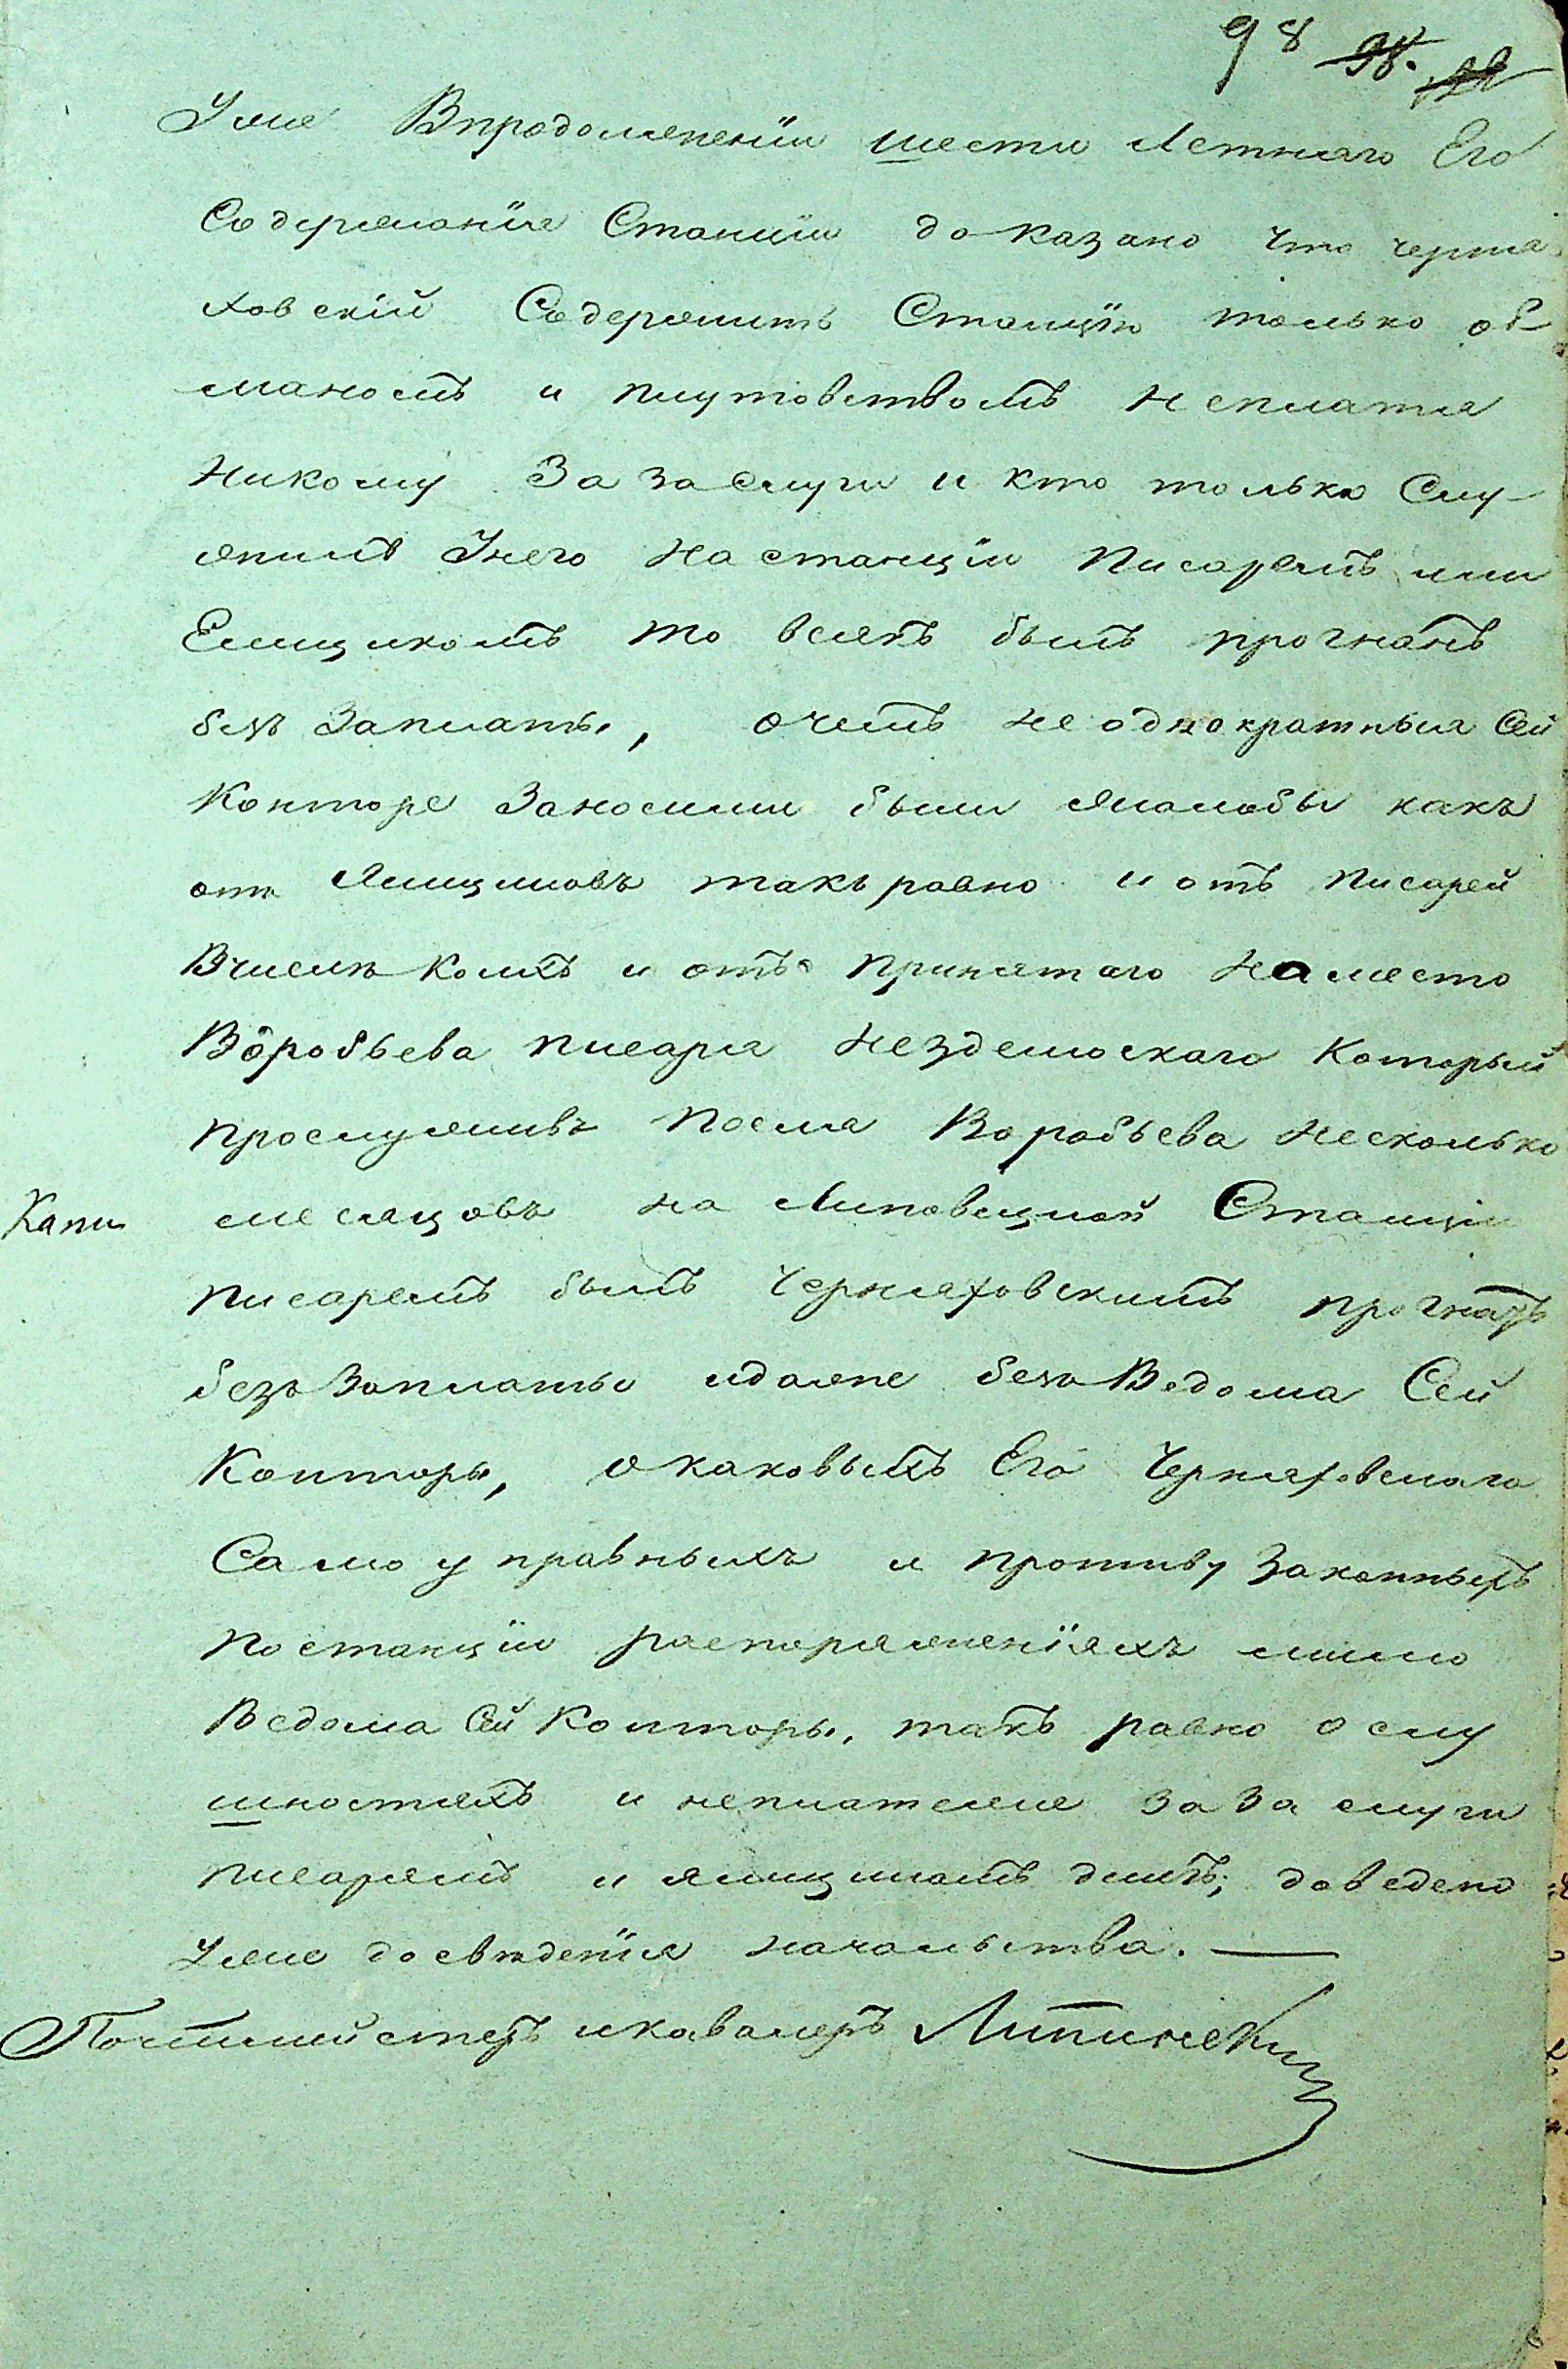 98 98. 122
Уже Впродолженіи шести Летняго Его
Содержанія Станціи доказано что черня
ховскій Содержитъ Станцію только об-
маномъ и плутовствомъ неплатя
никому За заслуги и кто только Слу-
жилъ Унего на станціи писаремъ или
Емщикомъ то всякъ былъ прогнанъ
безъ Заплаты, очемъ не однократныя Сей
Конторе Заносими были жалобы какъ
отъ Ямщиковъ такъ равно и отъ писарей
Вчислѣ коихъ и отъ принятаго на место
Воробьева писаря Нездемоскаго Который
прослуживъ посля Воробьева несколько
Капи
месяцовъ на Липовецкой Станціи
писаремъ былъ Черняховскимъ прогнатъ
безъ Заплаты идаже безъ Ведома Сей
Конторы, окаковыхъ Его Черняховскаго
Самоуправныхъ и противу Законныхъ
постанціи распоряженіяхъ мимо
Ведома Сей Конторы, такъ равно о слу
шностяхъ и неплатеже за За слуги
писарямъ и ямщикамъ дѣнгъ; доведено
уже до свѣденія начальства.
Почтмейстеръ икавалеръ Липинскій